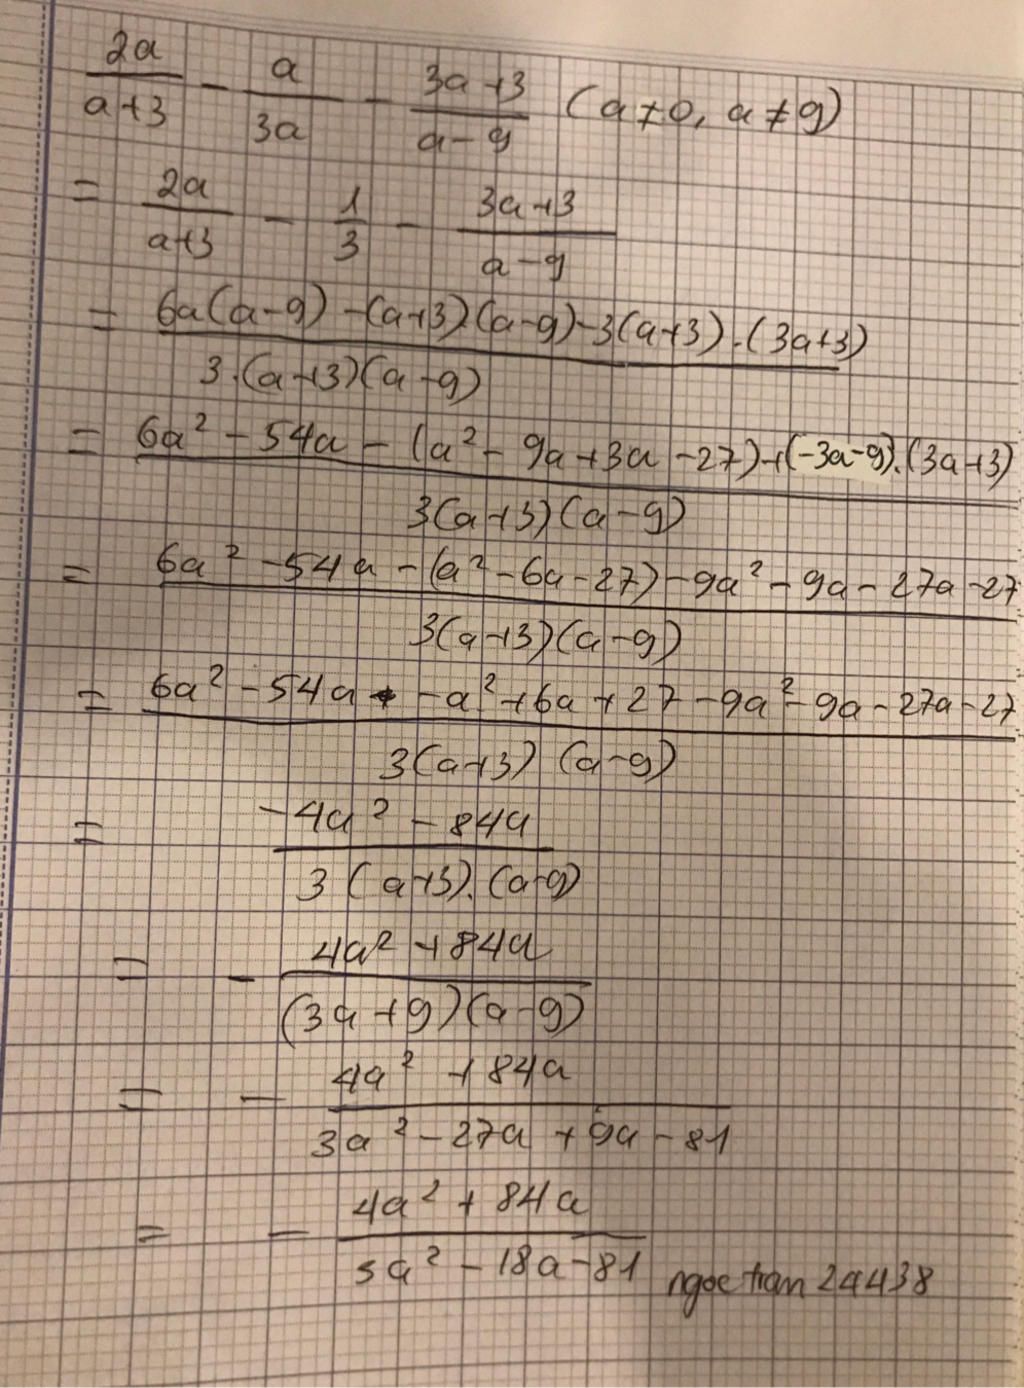 2a/(a+3) - a/3a - (3a+3)/(a-9) (a≠0, a≠9)
= 2a/(a+3) - 1/3 - (3a+3)/(a-9)
= (6a(a-9) -(a+3).(a-9)-3(a+3).(3a+3))/(3.(a+3)(a-9))
= (6a² - 54a - (a² - 9a+3a -27)+(-3a-9).(3a+3))/(3(a+3)(a-9))
= (6a² - 54a - (a² - 6a - 27) - 9a² - 9a - 27a - 27)/(3(a+3)(a-9))
= (6a² - 54a - a² + 6a + 27 - 9a² - 9a - 27a - 27)/(3(a+3) (a-9))
= (-4a² - 84a)/(3(a+3).(a-9))
= - (4a² + 84a)/((3a+9)(a-9))
= - (4a² + 84a)/(3a² - 27a + 9a - 81)
= - (4a² + 84a)/(3a² - 18a - 81) ngoctran2a438